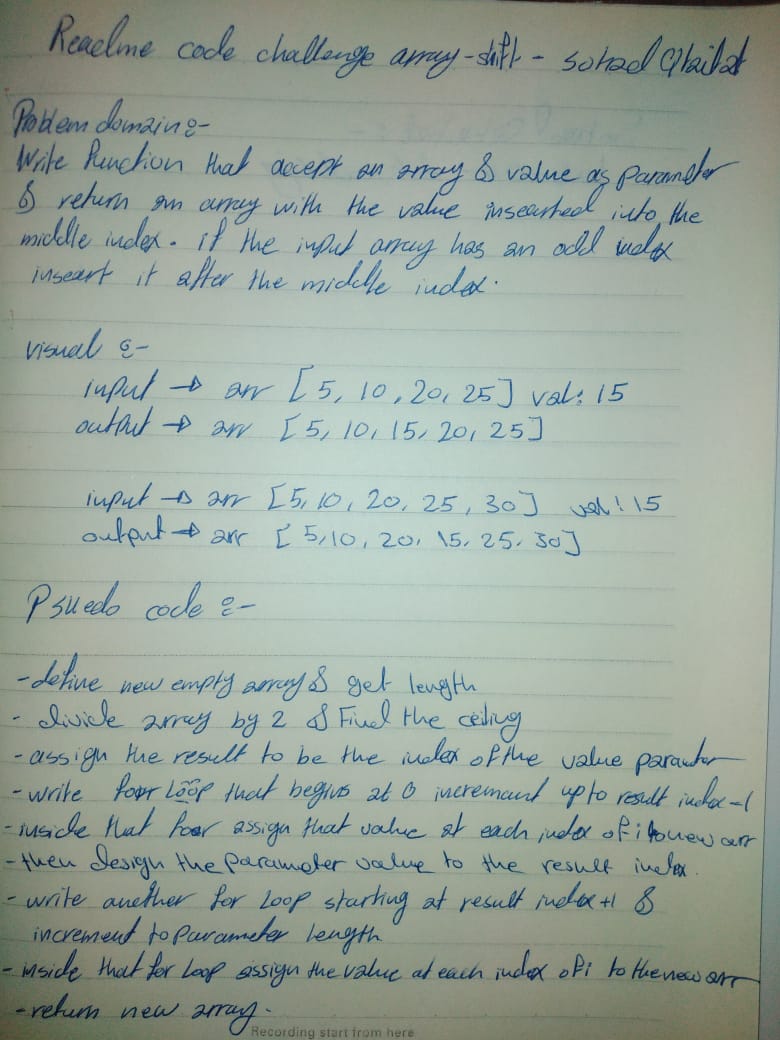 Readme code challenge array-shift - sohad Qtaitat
Problem domain :-
Write Function that accept an array & value as parameter
& return an array with the value insearted into the
middle index. if the input array has an odd index
inseart it after the middle index.
visual :-
input → arr [5, 10, 20, 25] val: 15
output → arr [5, 10, 15, 20, 25]
input → arr [5, 10, 20, 25, 30] val: 15
output → arr [5, 10, 20, 15, 25, 30]
Psuedo code :-
- define new empty array & get length
- divide array by 2 & Find the ceiling
- assign the result to be the index of the value paramter
- write foor Loop that begins at 0 incremant up to result index-1
- inside that foor assign that value at each index of i to new arr
- then design the parameter value to the result index.
- write another for Loop starting at result index+1 &
increment to Parameter length
- inside that for Loop assign the value at each index of i to the new arr
- return new array.
Recording start from here